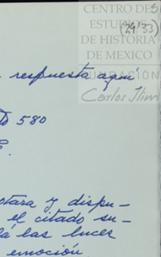 CENTRO DE
ESTUDIOS
DE HISTORIA
DE MEXICO
(29-33)
respuesta aquí
FUNDACION
Carlos Slim
580
otara y dispu-
el citado su-
la las lucer
emoción